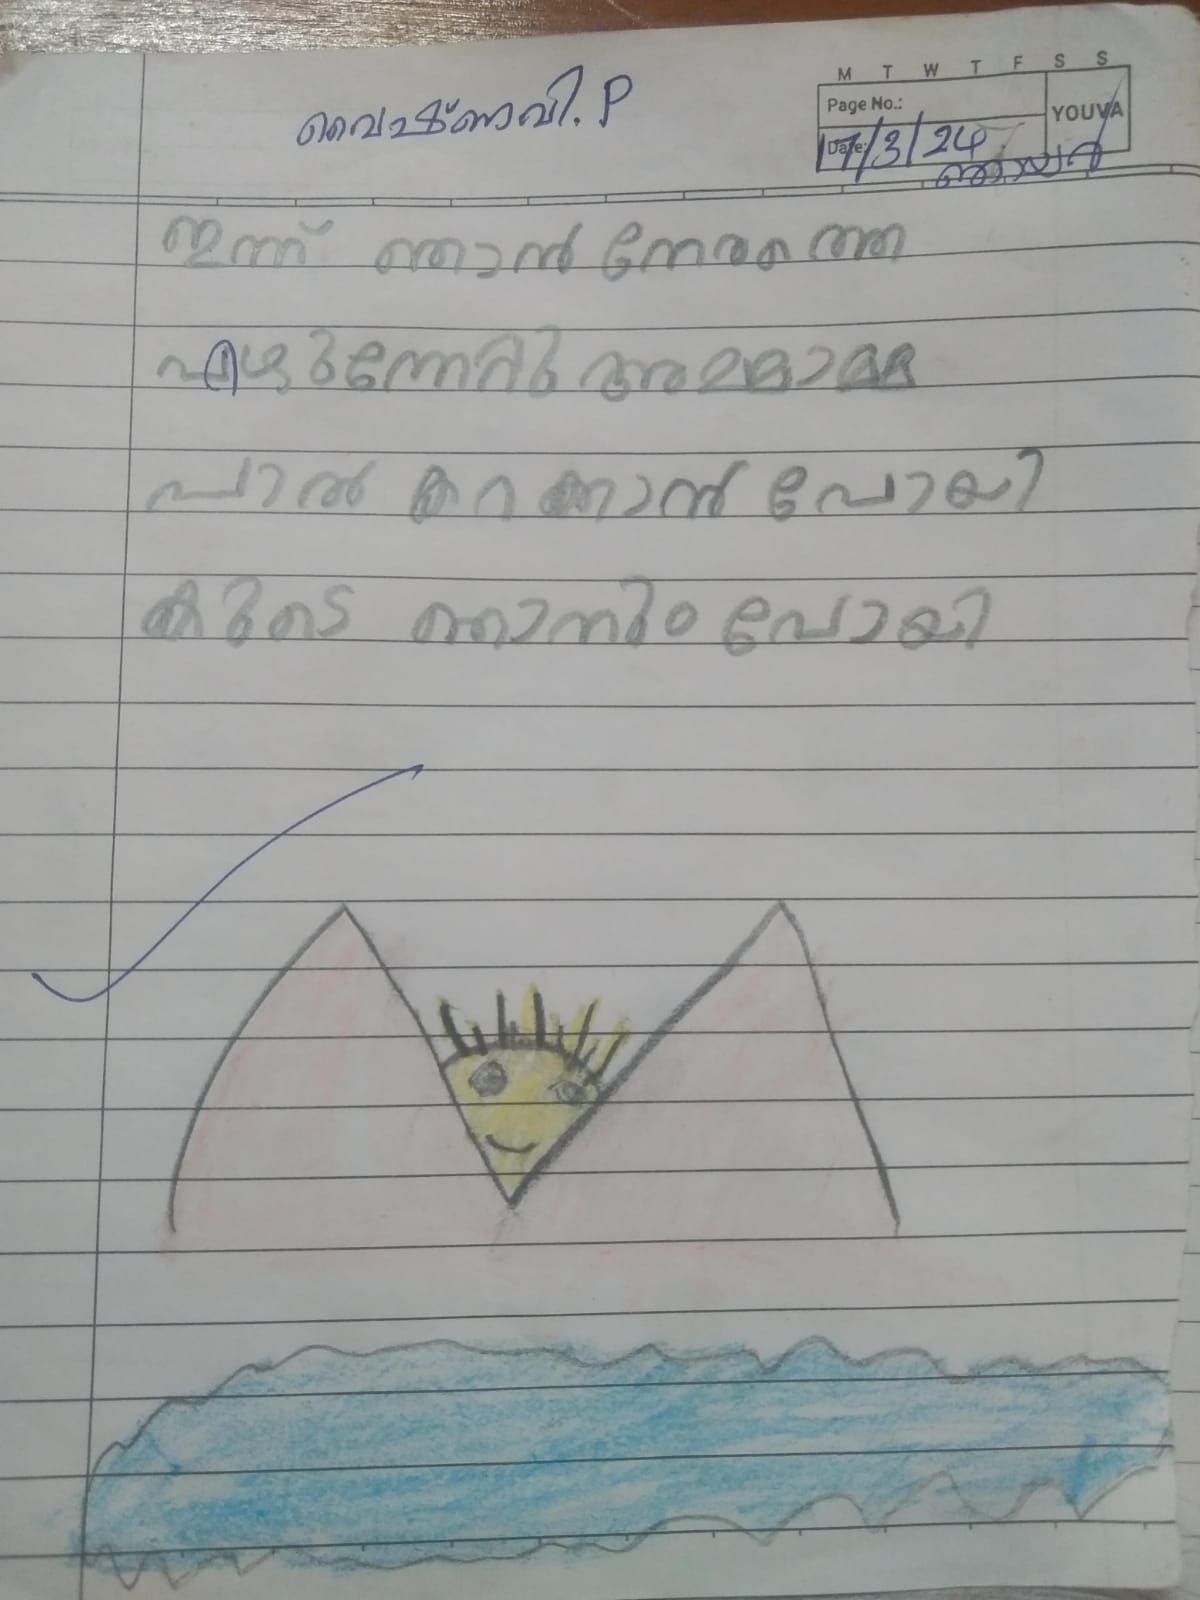 വൈഷ്ണവി. P
M T W T F S S
Page No.:
YOUVA
Date: 17/3/24
ഞായർ
ഇന്ന് ഞാൻ നേരത്തെ
എഴുന്നേറ്റു അമ്മാമ്മ
പാൽ കറക്കാൻ പോയി
കൂടെ ഞാനും പോയി